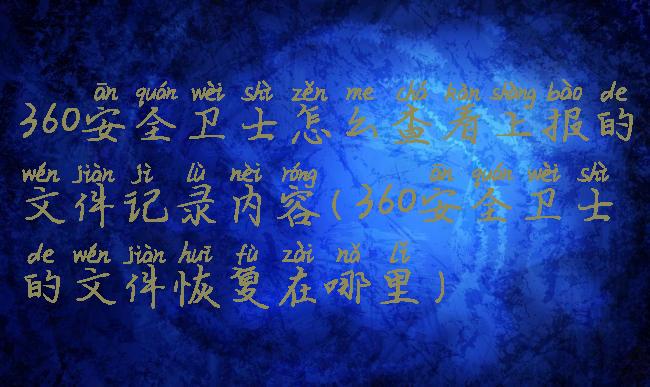 ān quán wèi shì zěn me chá kàn shàng bào de
360安全卫士怎么查看上报的
wén jiàn jì lù nèi róng ān quán wèi shì
文件记录内容(360安全卫士
de wén jiàn huī fù zài nǎ lǐ
的文件恢复在哪里)